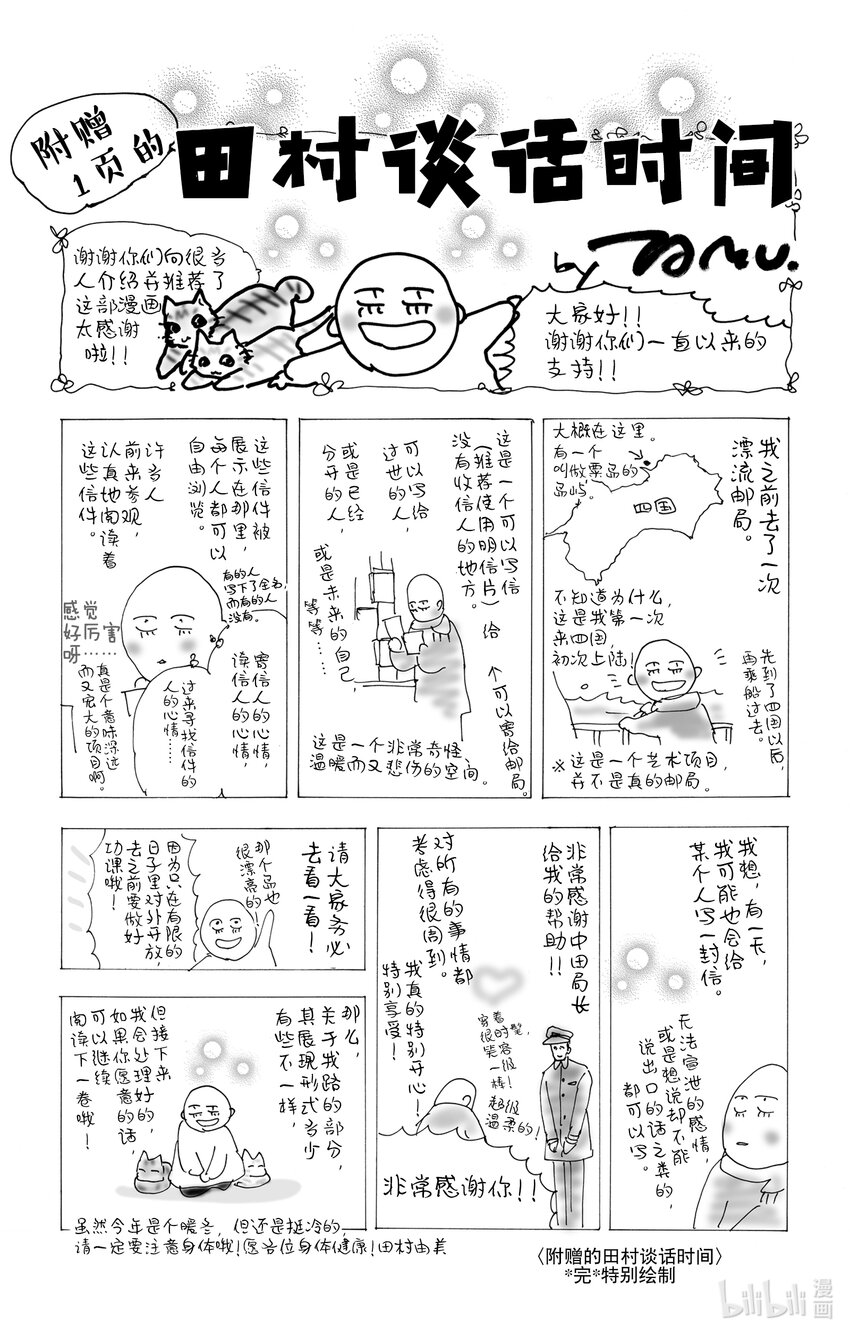 附赠
1页的
田村谈话时间
by
谢谢你们向很多
人介绍并推荐了
这部漫画
太感谢
啦!!
大家好!!
谢谢你们一直以来的
支持!!
我之前去了一次
漂流邮局。
大概在这里。
有一个
叫做粟岛的
岛屿。
四国
不知道为什么,
这是我第一次
来四国,
初次上陆!
先到了四国以后,
再乘船过去。
※这是一个艺术项目,
并不是真的邮局。
这是一个可以写信
(推荐使用明信片)给
没有收信人的地方。
↑可以寄给邮局。
可以写给
过世的人,
或是已经
分开的人,
或是未来的自己,
等等……
这是一个非常奇怪
温暖而又悲伤的空间。
这些信件被
展示在那里,
每个人都可以
自由浏览。
许多人
前来参观,
认真地阅读着
这些信件。
有的人
写下了全名,
而有的人
没有。
寄信人的心情,
读信人的心情,
过来寻找信件的
人的心情……
感觉
好厉害
呀……
真是个意味深远
而又宏大的项目啊。
我想,有一天,
我可能也会给
某个人写一封信。
无法宣泄的感情,
或是想说却不能
说出口的话之类的,
都可以写。
非常感谢中田局长
给我的帮助!!
对所有的事情都
考虑得很周到。
我真的特别开心!
特别享受!
穿着
很时髦,
笑容
一级
棒!
超级
温柔的!
非常感谢你!!
请大家务必
去看一看!
那个岛也
很漂亮的!
因为只在有限的
日子里对外开放,
去之前要做好
功课哦!
那么,
关于我路的部分,
其展现形式多少
有些不一样,
但接下来
我会处理好的,
如果你愿意的话,
可以继续
阅读下一卷哦!
虽然今年是个暖冬,但还是挺冷的,
请一定要注意身体哦!愿各位身体健康!田村由美
〈附赠的田村谈话时间〉
*完*特别绘制
bilibili
漫画